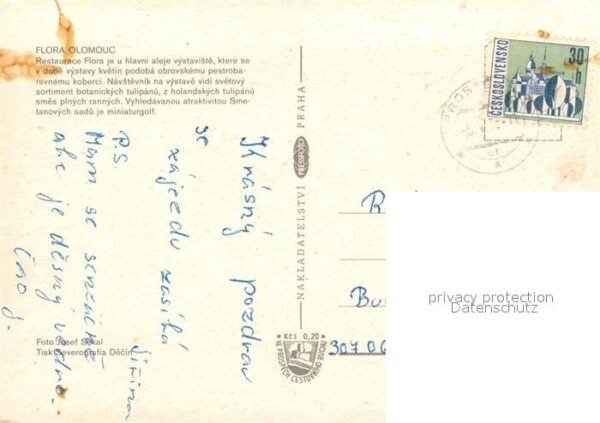 FLORA OLOMOUC
Restaurace Flora je u hlavní aleje výstaviště, které se
v době výstavy květin podobá obrovskému pestroba-
revnému koberci. Návštěvník na výstavě vidí světový
sortiment botanických tulipánů, z holandských tulipánů
směs plných ranných. Vyhledávanou atraktivitou Sme-
tanových sadů je miniaturgolf.
Krásný pozdrav
ze zájezdu zasílá
Jiřina
PS
Mám se senzačně
ale je děsný vedro.
Čao J.
Foto Josef Sekal
Tisk Severografia Děčín
NAKLADATELSTVÍ PRESSFOTO PRAHA
Kčs 0,20
VE PROSPĚCH CESTOVNÍHO RUCHU
ČESKOSLOVENSKO
30 h
PROST
Bu
307 06
privacy protection
Datenschutz